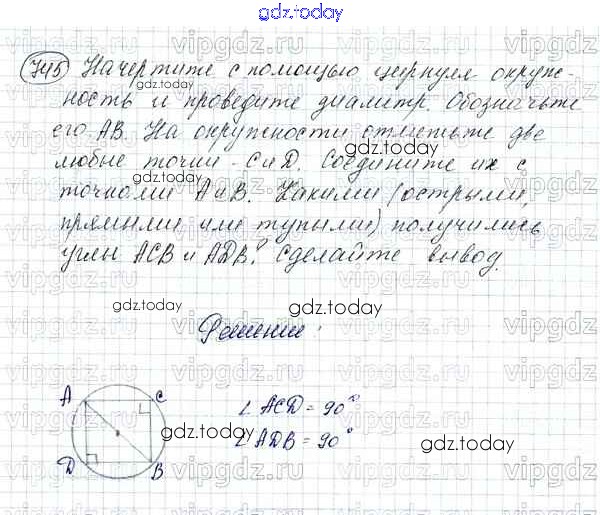 gdz.today
745 Начертите с помощью циркуля окруж-
ность и проведите диаметр. Обозначьте
его AB. На окружности отметьте две
любые точки - C и D. Соедините их с
точками A и B. Какими (острыми,
прямыми или тупыми) получились
углы ACB и ADB? Сделайте вывод.
gdz.today gdz.today
Решение:
A C
∠ ACD = 90°
gdz.today
∠ ADB = 90°
gdz.today
D B